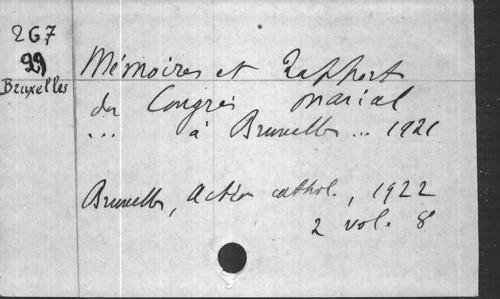 267
29
Bruxelles
Mémoires et Rapport
du Congrès marial
... à Bruxelles ... 1921
Bruxelles, Action cathol., 1922
2 vol. 8°